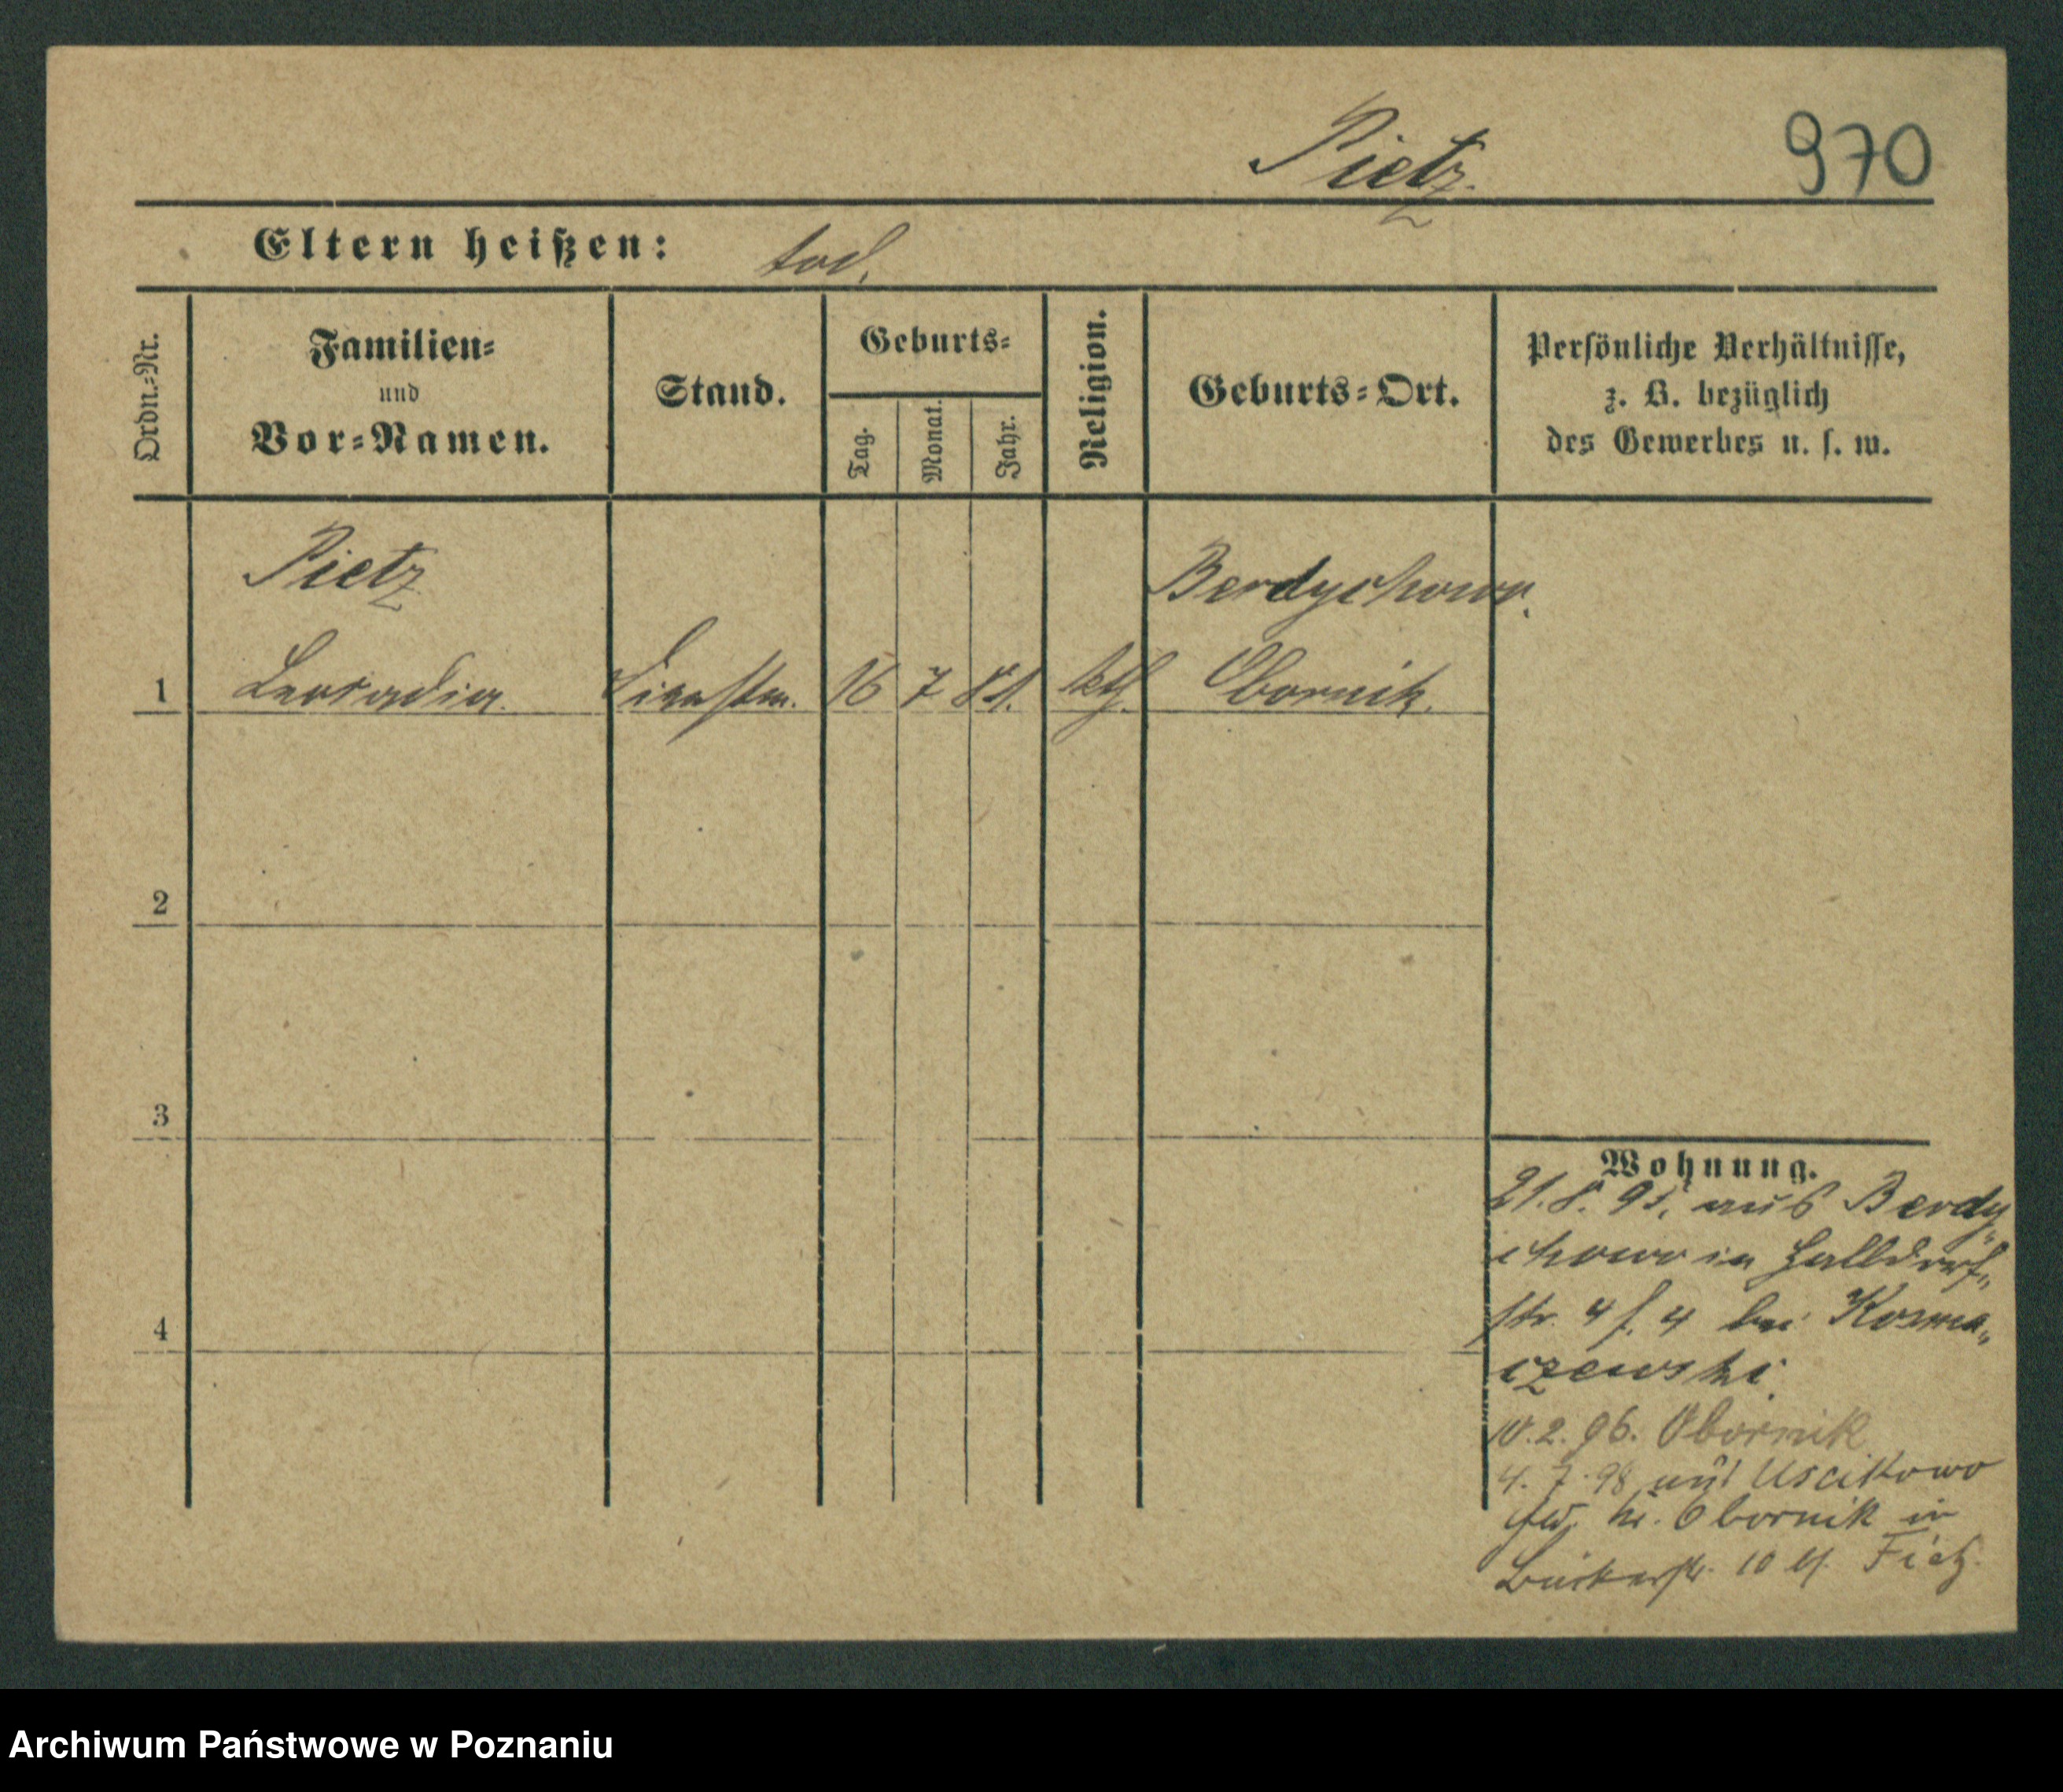 Pietz. 970
Eltern heißen: tod.
Ordn.-Nr.
Familien-
und
Vor-Namen.
Stand.
Geburts-
Tag.
Monat.
Jahr.
Religion.
Geburts-Ort.
Persönliche Verhältnisse,
z. B. bezüglich
des Gewerbes u. s. w.
Pietz Berdychowo.
1 Leocadia. Dienstm. 16 7 81. kth. Obornik.
2
3
4
Wohnung.
21.8.95. aus Berdy
chowo in Halldorf„
str. 4 f. 4 bei
czewski.
10.2.96. Obornik
4.7.98 aus Uscikowo
Kr. Obornik in
Bäckerstr. 10
Archiwum Państwowe w Poznaniu